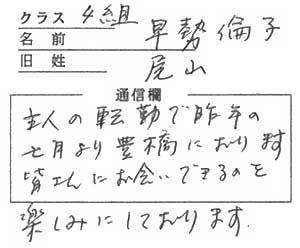 クラス 4組
名前 早勢倫子
旧姓 尾山
通信欄
主人の転勤で昨年の
七月より豊橋におります
皆さんにお会いできるのを
楽しみにしております.